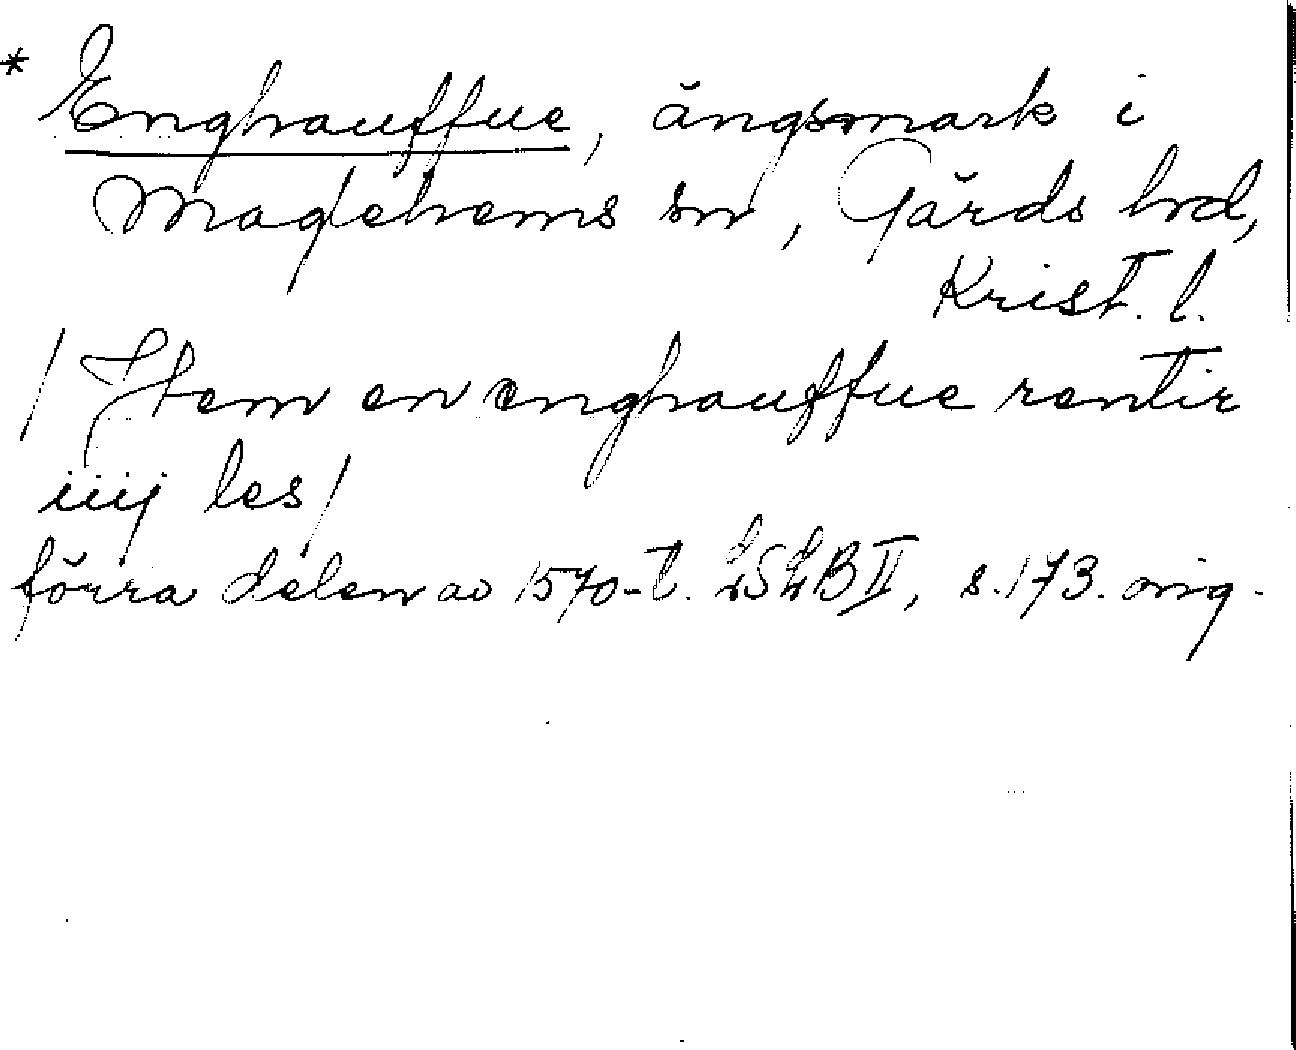 * Enghauffue, ängsmark i
Maglehems sn, Gärds hd,
Krist. l.
/Item en enghauffue rentir
iiij les/
förra delen av 1570-t. LSLB II, s. 173. orig.